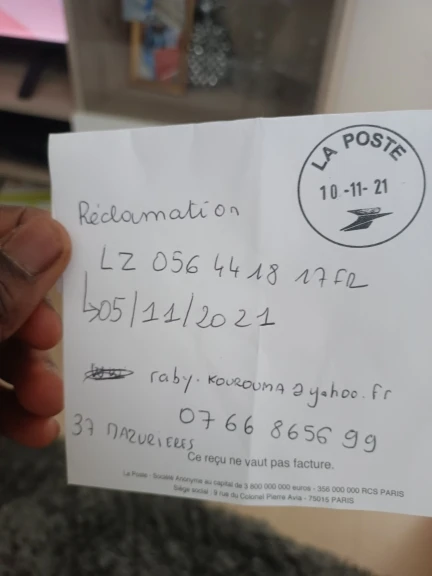 LA POSTE
10-11-21
Réclamation
LZ 056 44 18 17 FR
↳05/11/2021
raby.KOUROUMA@yahoo.fr
07 66 86 56 99
37 MAZURIERES
Ce reçu ne vaut pas facture.
La Poste - Société Anonyme au capital de 3 800 000 000 euros - 356 000 000 RCS PARIS
Siège social : 9 rue du Colonel Pierre Avia - 75015 PARIS